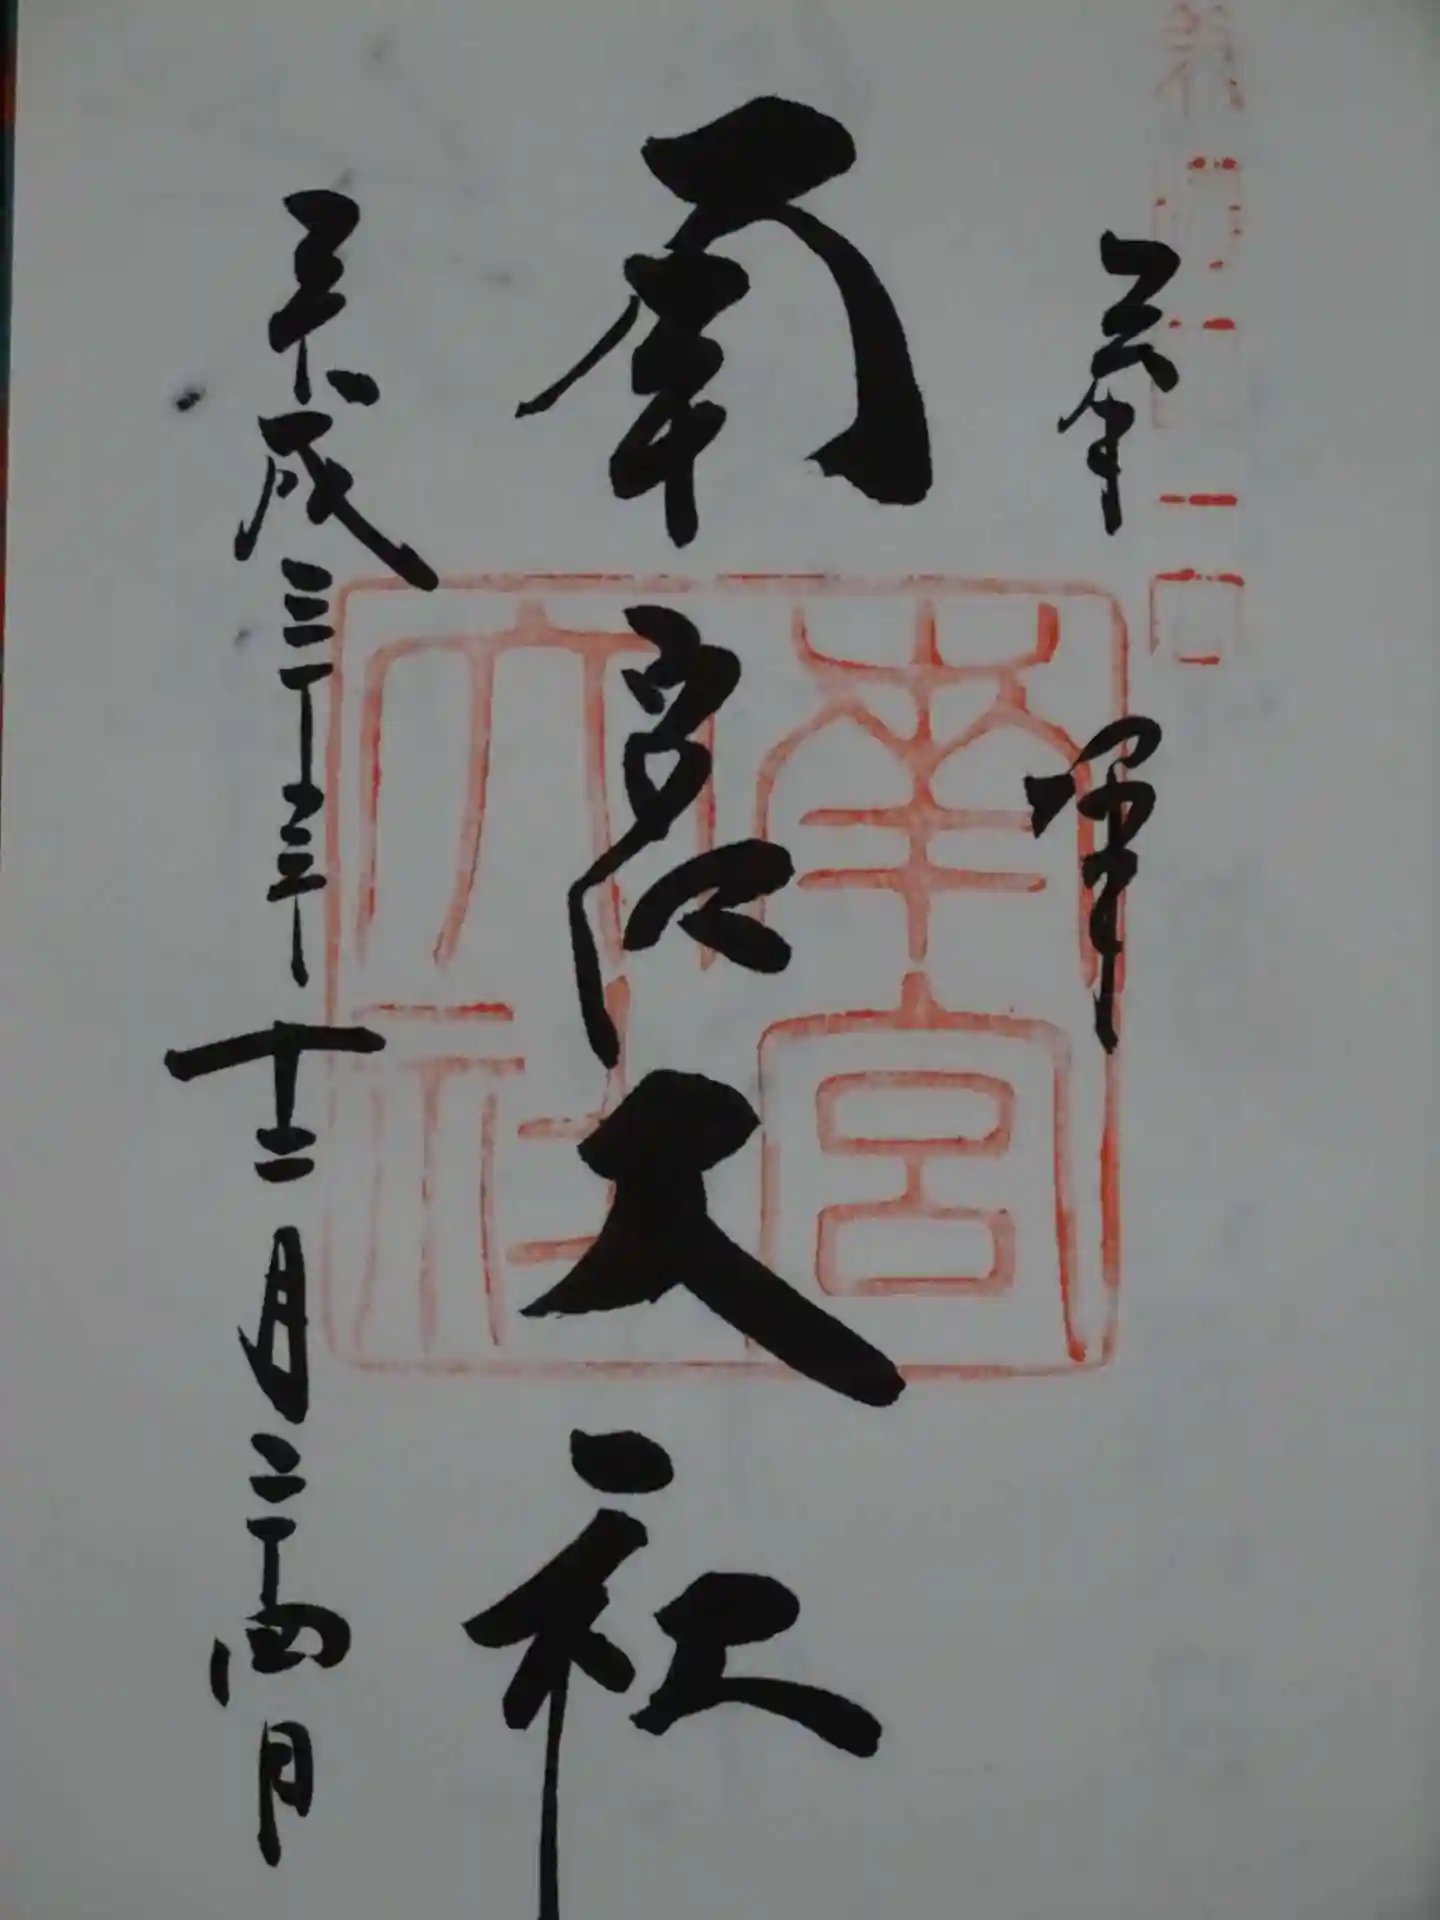 奉拝
南宮大社
平成三十年十二月二十四日
南宮大社